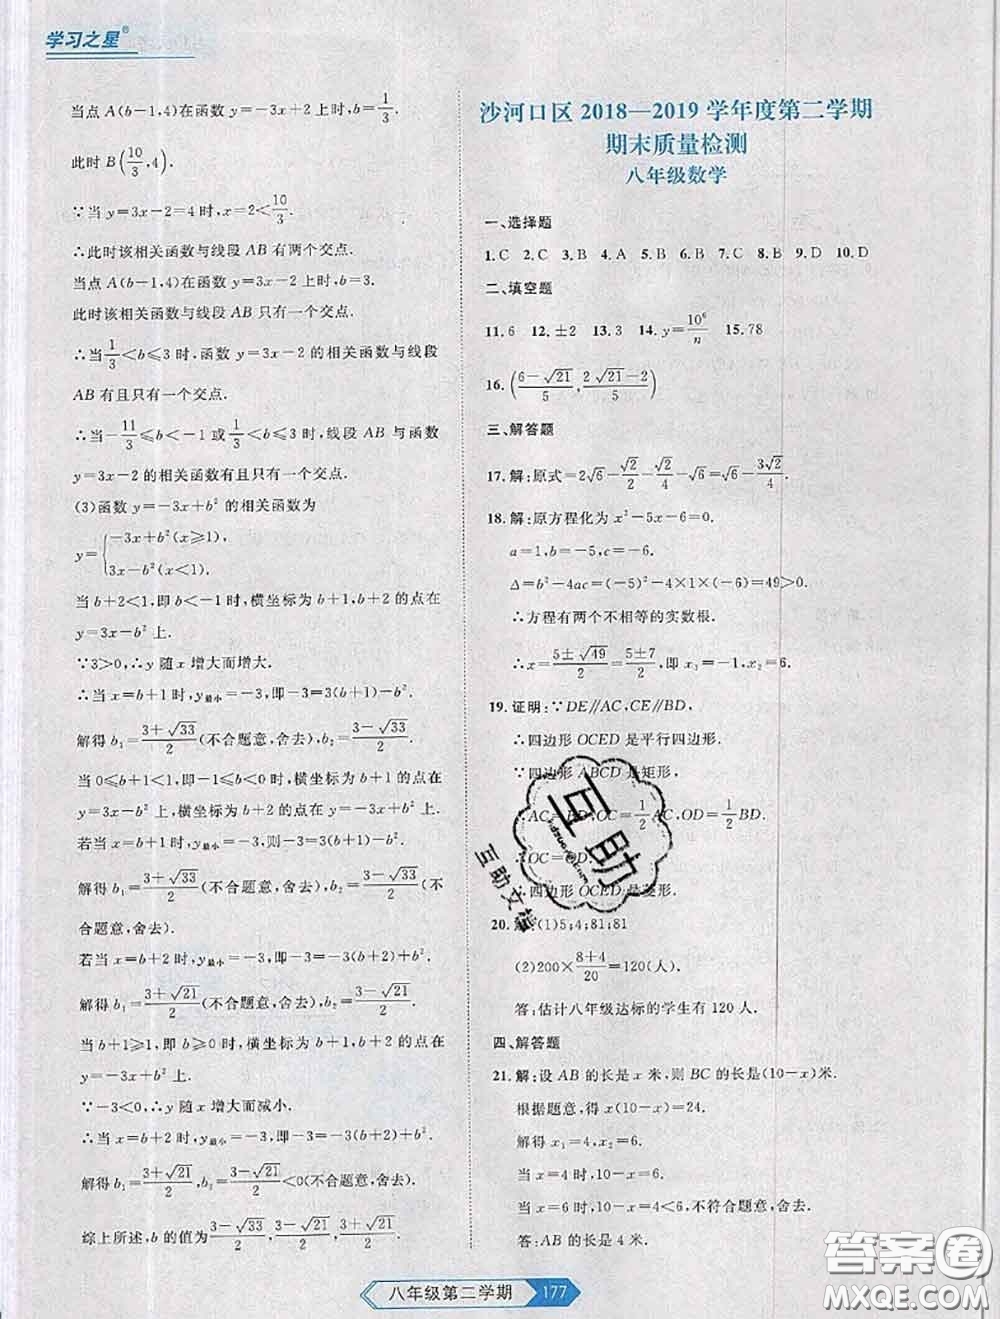 学习之星®
当点 A(b-1,4)在函数 y=-3x+2 上时,b=1/3.
此时 B(10/3,4).
∵当 y=3x-2=4 时,x=2<10/3.
∴此时该相关函数与线段 AB 有两个交点.
当点 A(b-1,4)在函数 y=3x-2 上时,b=3.
此时该相关函数与线段 AB 只有一个交点.
∴当1/3<b≤3 时,函数 y=3x-2 的相关函数与线段
AB 有且只有一个交点.
∴当-11/3≤b<-1 或1/3<b≤3 时,线段 AB 与函数
y=3x-2 的相关函数有且只有一个交点.
(3)函数 y=-3x+b² 的相关函数为
y={-3x+b²(x≥1),
3x-b²(x<1).
当 b+2<1,即 b<-1 时,横坐标为 b+1,b+2 的点在
y=3x-b² 上.
∵3>0,∴y 随 x 增大而增大.
∴当 x=b+1 时,y最小=-3,即-3=3(b+1)-b².
解得 b₁=(3+√33)/2(不合题意,舍去),b₂=(3-√33)/2.
当 0≤b+1<1,即-1≤b<0 时,横坐标为 b+1 的点在
y=3x-b² 上,横坐标为 b+2 的点在 y=-3x+b² 上.
若当 x=b+1 时,y最小=-3,则-3=3(b+1)-b².
解得 b₁=(3+√33)/2(不合题意,舍去),b₂=(3-√33)/2(不
合题意,舍去).
若当 x=b+2 时,y最小=-3,即-3=-3(b+2)+b².
解得 b₁=(3+√21)/2(不合题意,舍去),b₂=(3-√21)/2.
当 b+1≥1,即 b≥0 时,横坐标为 b+1,b+2 的点在
y=-3x+b² 上.
∵-3<0,∴y 随 x 增大而减小.
∴当 x=b+2 时,y最小=-3,即-3=-3(b+2)+b².
解得 b₁=(3+√21)/2,b₂=(3-√21)/2<0(不合题意,舍去).
综上所述,b 的值为(3-√33)/2,(3-√21)/2,(3+√21)/2.
沙河口区 2018—2019 学年度第二学期
期末质量检测
八年级数学
一、选择题
1.C 2.C 3.B 4.A 5.C 6.B 7.C 8.B 9.D 10.D
二、填空题
11.6 12.±2 13.3 14.y=10⁶/n 15.78
16.((6-√21)/5,(2√21-2)/5)
三、解答题
17.解:原式=2√6-√2/2-√2/4-√6=√6-3√2/4.
18.解:原方程化为 x²-5x-6=0.
a=1,b=-5,c=-6.
Δ=b²-4ac=(-5)²-4×1×(-6)=49>0.
∴方程有两个不相等的实数根.
∴x=(5±√49)/2=(5±7)/2,即 x₁=-1,x₂=6.
19.证明:∵DE∥AC,CE∥BD,
∴四边形 OCED 是平行四边形.
∵四边形 ABCD 是矩形,
∴AC=BD,OC=1/2AC,OD=1/2BD.
∴OC=OD.
∴四边形 OCED 是菱形.
20.解:(1)5;4;81;81
(2)200×(8+4)/20=120(人).
答:估计八年级达标的学生有 120 人.
四、解答题
21.解:设 AB 的长是 x 米,则 BC 的长是(10-x)米.
根据题意,得 x(10-x)=24.
解得 x₁=4,x₂=6.
当 x=4 时,10-x=6.
当 x=6 时,10-x=4<6,不符合题意,舍去.
答:AB 的长是 4 米.
互助
互助文档
八年级第二学期 177
答案卷
MXQE.COM